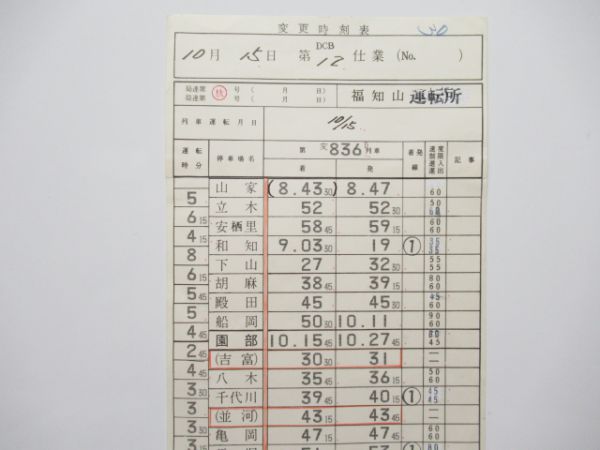 変更時刻表 30
10月 15日 第 DCB 12 仕業 (No. )
局達第 号 ( 月 日)
局達第 号 ( 月 日)
福知山 運転所
列車運転月日 10/15
運転時分 停車場名 第 変836 列車 着 発 着発線 記事
山家 (8.43 30) 8.47 60
5 立木 52 52 30 50 60
6 15 安栖里 58 45 59 15 60 60
4 15 和知 9.03 30 19 ① 35 35
8 下山 27 32 30 55 55
6 15 胡麻 38 45 39 15 80 60
5 45 殿田 45 45 30 45 60
5 船岡 50 30 10.11 90 60
4 45 園部 10.15 45 10.27 45 60 45
2 45 (吉富) 30 30 31 —
4 45 八木 35 45 36 15 50 60
3 千代川 39 45 40 15 ① 45 45
3 (並河) 43 15 43 45 —
3 30 亀岡 47 15 47 45 60 60